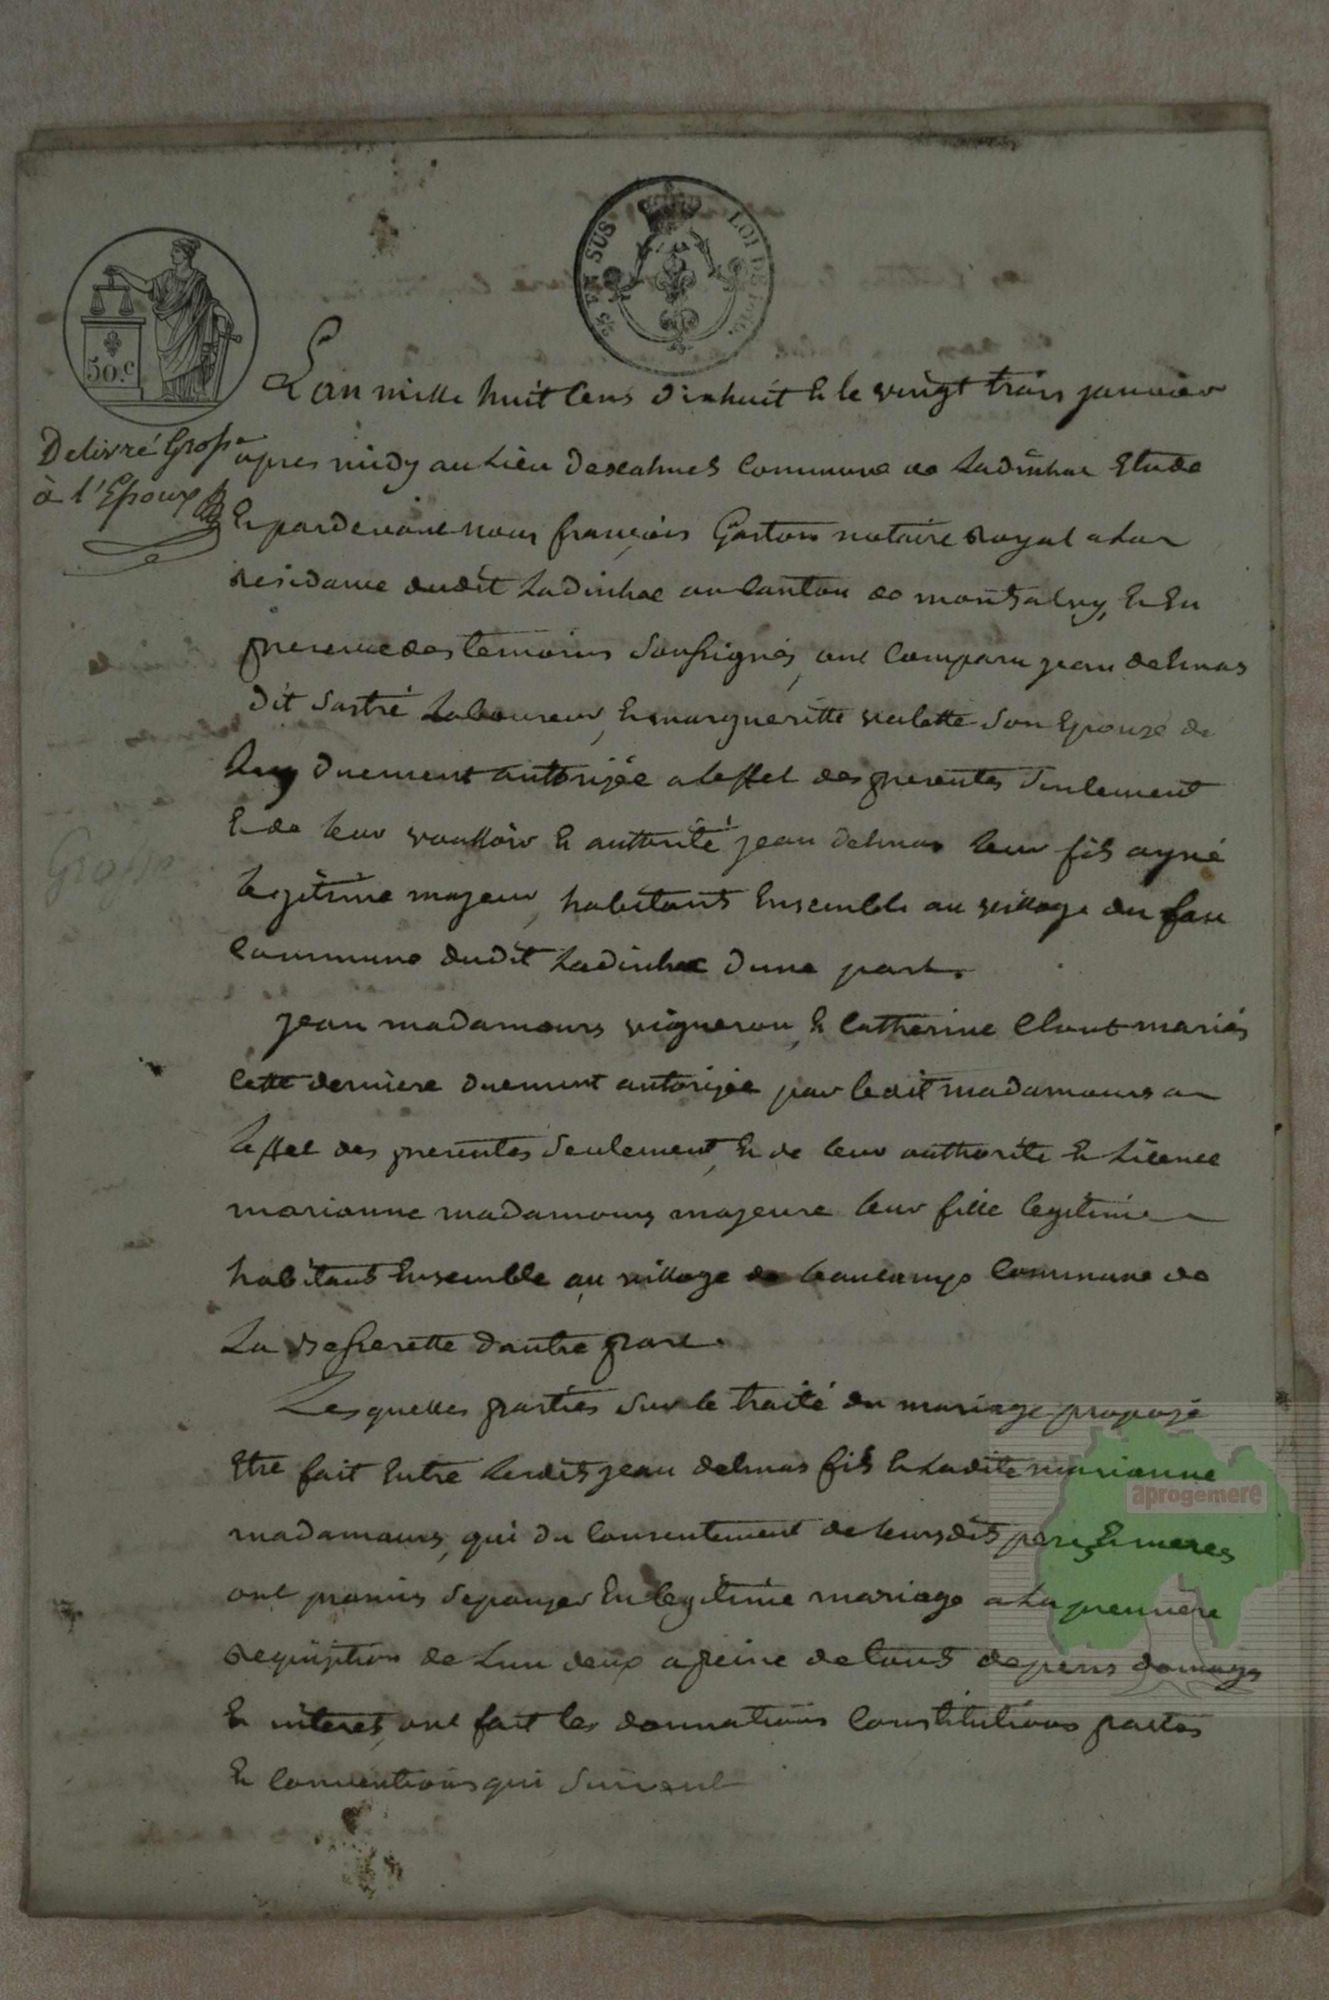 ⅖ EN SUS
LOI DE 1816.
50.c
Delivré Grosse
à l'Epoux
Grosse
L'an mille huit cens dixhuit & le vingt trois janvier
apres midy au lieu Descalmels commune de Ladinhac Etude
& pardevant nous françois Gaston notaire royal a la
residance dudit Ladinhac au Canton de montsalvy, & En
presence des temoins Soussignés, ont Comparu jean delmas
dit Sartre Laboureur, & margueritte valette Son Epouze de
Luy duement autorizée a leffet des presentes Seulement
& de leur voulloir & authorité jean delmas leur fils ayné
legitime majeur, habitans Ensemble au village du fau
Commune dudit Ladinhac dune part.
jean madamours vigneron, & Catherine mariés
Cette derniere duement autorizée par ledit madamours a
Leffet des presentes Seulement, & de leur authorité & Licence
marianne madamours majeure leur fille legitime
habitans Ensemble au village de beaucamp Commune de
La Besserette dautre part.
Lesquelles parties Sur le traité du mariage propozé
Etre fait Entre Lesdits jean delmas fils & Ladite marianne
madamours, qui du Consentement de leursdits peres & meres
ont promis depouzer En legitime mariage a La premiere
requisition de Lun deux a peine de tous depens domages
& interets, ont fait les donnations Constitutions pactes
& Conventions qui Suivent
aprogemere